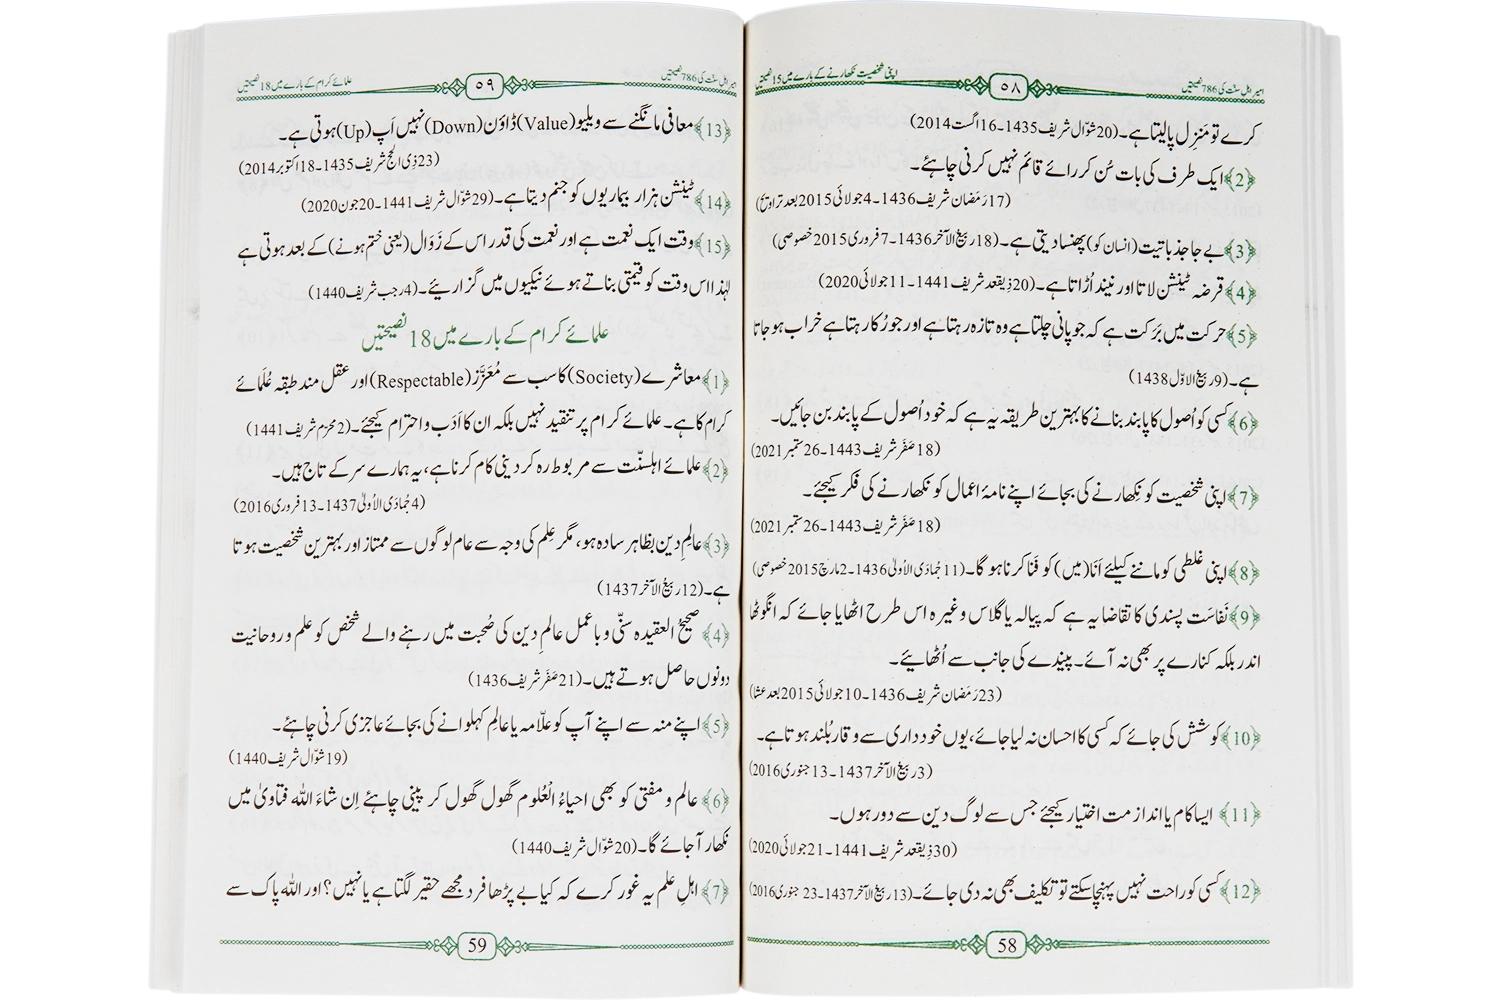 امیر اہل سنت کی 786 نصیحتیں
۵۸
اپنی شخصیت نکھارنے کے بارے میں 15 نصیحتیں
کرے تو مَنزِل پالیتا ہے۔ (20 شوّال شریف 1435۔ 16 اگست 2014)
﴿2﴾ ایک طرف کی بات سُن کر رائے قائم نہیں کرنی چاہئے۔
(17 رَمَضان شریف 1436۔ 4 جولائی 2015 بعد تراویح)
﴿3﴾ بے جا جذباتیت (انسان کو) پھنسا دیتی ہے۔ (18 ربیع الآخر 1436۔ 7 فروری 2015 خصوصی)
﴿4﴾ قرضہ ٹینشن لاتا اور نیند اُڑاتا ہے۔ (20 ذیقعد شریف 1441۔ 11 جولائی 2020)
﴿5﴾ حرکت میں بَرَکت ہے کہ جو پانی چلتا ہے وہ تازہ رہتا ہے اور جو رُکا رہتا ہے خراب ہو جاتا
ہے۔ (9 ربیع الاوّل 1438)
﴿6﴾ کسی کو اُصول کا پابند بنانے کا بہترین طریقہ یہ ہے کہ خود اُصول کے پابند بن جائیں۔
(18 صَفَر شریف 1443۔ 26 ستمبر 2021)
﴿7﴾ اپنی شخصیت کو نِکھارنے کی بجائے اپنے نامۂ اعمال کو نکھارنے کی فکر کیجئے۔
(18 صَفَر شریف 1443۔ 26 ستمبر 2021)
﴿8﴾ اپنی غلطی کو ماننے کیلئے اَنَا (میں) کو فَنا کرنا ہو گا۔ (11 جُمادَی الاُولیٰ 1436۔ 2 مارچ 2015 خصوصی)
﴿9﴾ نَفاسَت پسندی کا تقاضا یہ ہے کہ پیالہ یا گلاس وغیرہ اس طرح اٹھایا جائے کہ انگوٹھا
اندر بلکہ کنارے پر بھی نہ آئے۔ پیندے کی جانب سے اُٹھائیے۔
(23 رَمَضان شریف 1436۔ 10 جولائی 2015 بعد عشا)
﴿10﴾ کوشش کی جائے کہ کسی کا احسان نہ لیا جائے، یوں خود داری سے وقار بُلند ہوتا ہے۔
(3 ربیع الآخر 1437۔ 13 جنوری 2016)
﴿11﴾ ایسا کام یا انداز مت اختیار کیجئے جس سے لوگ دین سے دور ہوں۔
(30 ذیقعد شریف 1441۔ 21 جولائی 2020)
﴿12﴾ کسی کو راحت نہیں پہنچا سکتے تو تکلیف بھی نہ دی جائے۔ (13 ربیع الآخر 1437۔ 23 جنوری 2016)
58
امیر اہل سنت کی 786 نصیحتیں
۵۹
علمائے کرام کے بارے میں 18 نصیحتیں
﴿13﴾ معافی مانگنے سے ویلیو (Value) ڈاؤن (Down) نہیں اَپ (Up) ہوتی ہے۔
(23 ذِی الحج شریف 1435۔ 18 اکتوبر 2014)
﴿14﴾ ٹینشن ہزار بیماریوں کو جنم دیتا ہے۔ (29 شوّال شریف 1441۔ 20 جون 2020)
﴿15﴾ وقت ایک نعمت ہے اور نعمت کی قدر اس کے زَوَال (یعنی ختم ہونے) کے بعد ہوتی ہے
لہٰذا اس وقت کو قیمتی بناتے ہوئے نیکیوں میں گزاریئے۔ (4 رجب شریف 1440)
علمائے کرام کے بارے میں 18 نصیحتیں
﴿1﴾ معاشرے (Society) کا سب سے مُعَزَّز (Respectable) اور عقل مند طبقہ عُلَمائے
کرام کا ہے۔ علمائے کرام پر تنقید نہیں بلکہ ان کا اَدَب و احترام کیجئے۔ (2 محرّم شریف 1441)
﴿2﴾ علمائے اہلسنّت سے مربوط رہ کر دینی کام کرنا ہے، یہ ہمارے سر کے تاج ہیں۔
(4 جُمادَی الاُولیٰ 1437۔ 13 فروری 2016)
﴿3﴾ عالِمِ دین بظاہر سادہ ہو، مگر عِلم کی وجہ سے عام لوگوں سے ممتاز اور بہترین شخصیت ہوتا
ہے۔ (12 ربیع الآخر 1437)
﴿4﴾ صحیحُ العقیدہ سنّی و باعمل عالمِ دین کی صُحبت میں رہنے والے شخص کو علم و روحانیت
دونوں حاصل ہوتے ہیں۔ (21 صَفَر شریف 1436)
﴿5﴾ اپنے منہ سے اپنے آپ کو علّامہ یا عالِم کہلوانے کی بجائے عاجزی کرنی چاہئے۔
(19 شوّال شریف 1440)
﴿6﴾ عالم و مفتی کو بھی احیاءُ الْعُلوم گھول گھول کر پینی چاہئے اِن شاءَ اللہ فتاویٰ میں
نکھار آ جائے گا۔ (20 شوّال شریف 1440)
﴿7﴾ اہلِ علم یہ غور کرے کہ کیا بے پڑھا فرد مجھے حقیر لگتا ہے یا نہیں؟ اور اللہ پاک سے
59